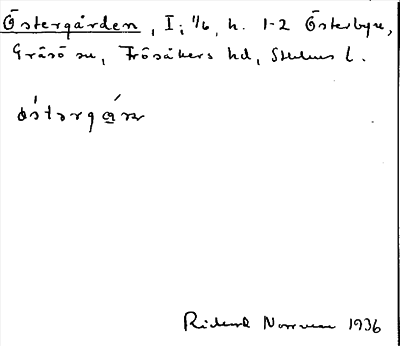 Östergården, I; 1/6, h. 1-2 Österbyn,
Gräsö sn, Frösåkers hd, Sthlms l.
östərga̲ɴ
Richard Norrman 1936